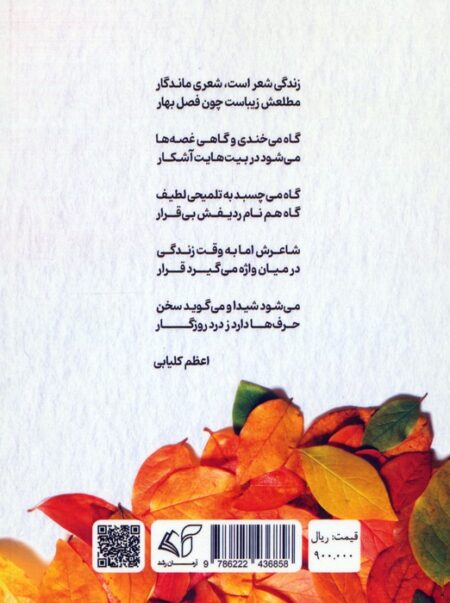 زندگی شعر است، شعری ماندگار
مطلعش زیباست چون فصل بهار
گاه می‌خندی و گاهی غصه‌ها
می‌شود در بیت‌هایت آشکار
گاه می‌چسبد به تلمیحی لطیف
گاه هم نام ردیفش بی‌قرار
شاعرش اما به وقت زندگی
در میان واژه می‌گیرد قرار
می‌شود شیدا و می‌گوید سخن
حرف‌ها دارد ز درد روزگار
اعظم کلیابی
قیمت: ریال
۹۰۰,۰۰۰
آرمان رشد
9 786222 436858